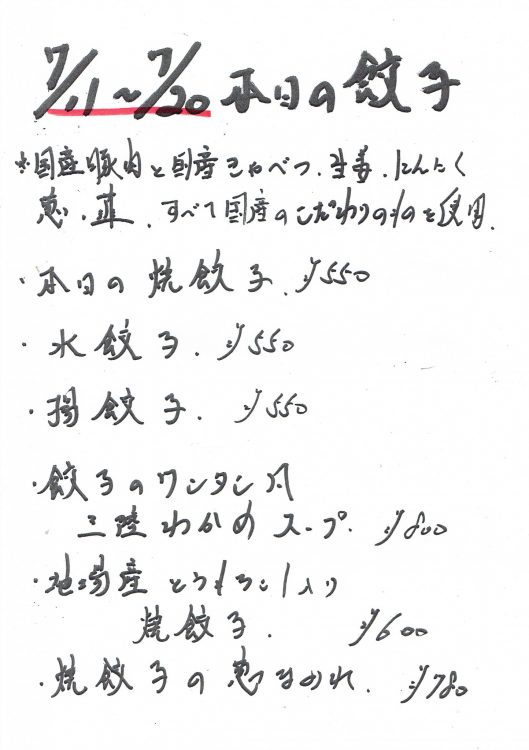 7/11～7/20 本日の餃子
※国産豚肉と国産きゃべつ、生姜、にんにく
葱、韮、すべて国産のこだわりのものを使用。
・本日の焼餃子。¥550
・水餃子。¥550
・揚餃子。¥550
・餃子のワンタン風
三陸わかめスープ。¥800
・地場産とうもろこし入り
焼餃子。¥600
・焼餃子の葱まみれ。¥780